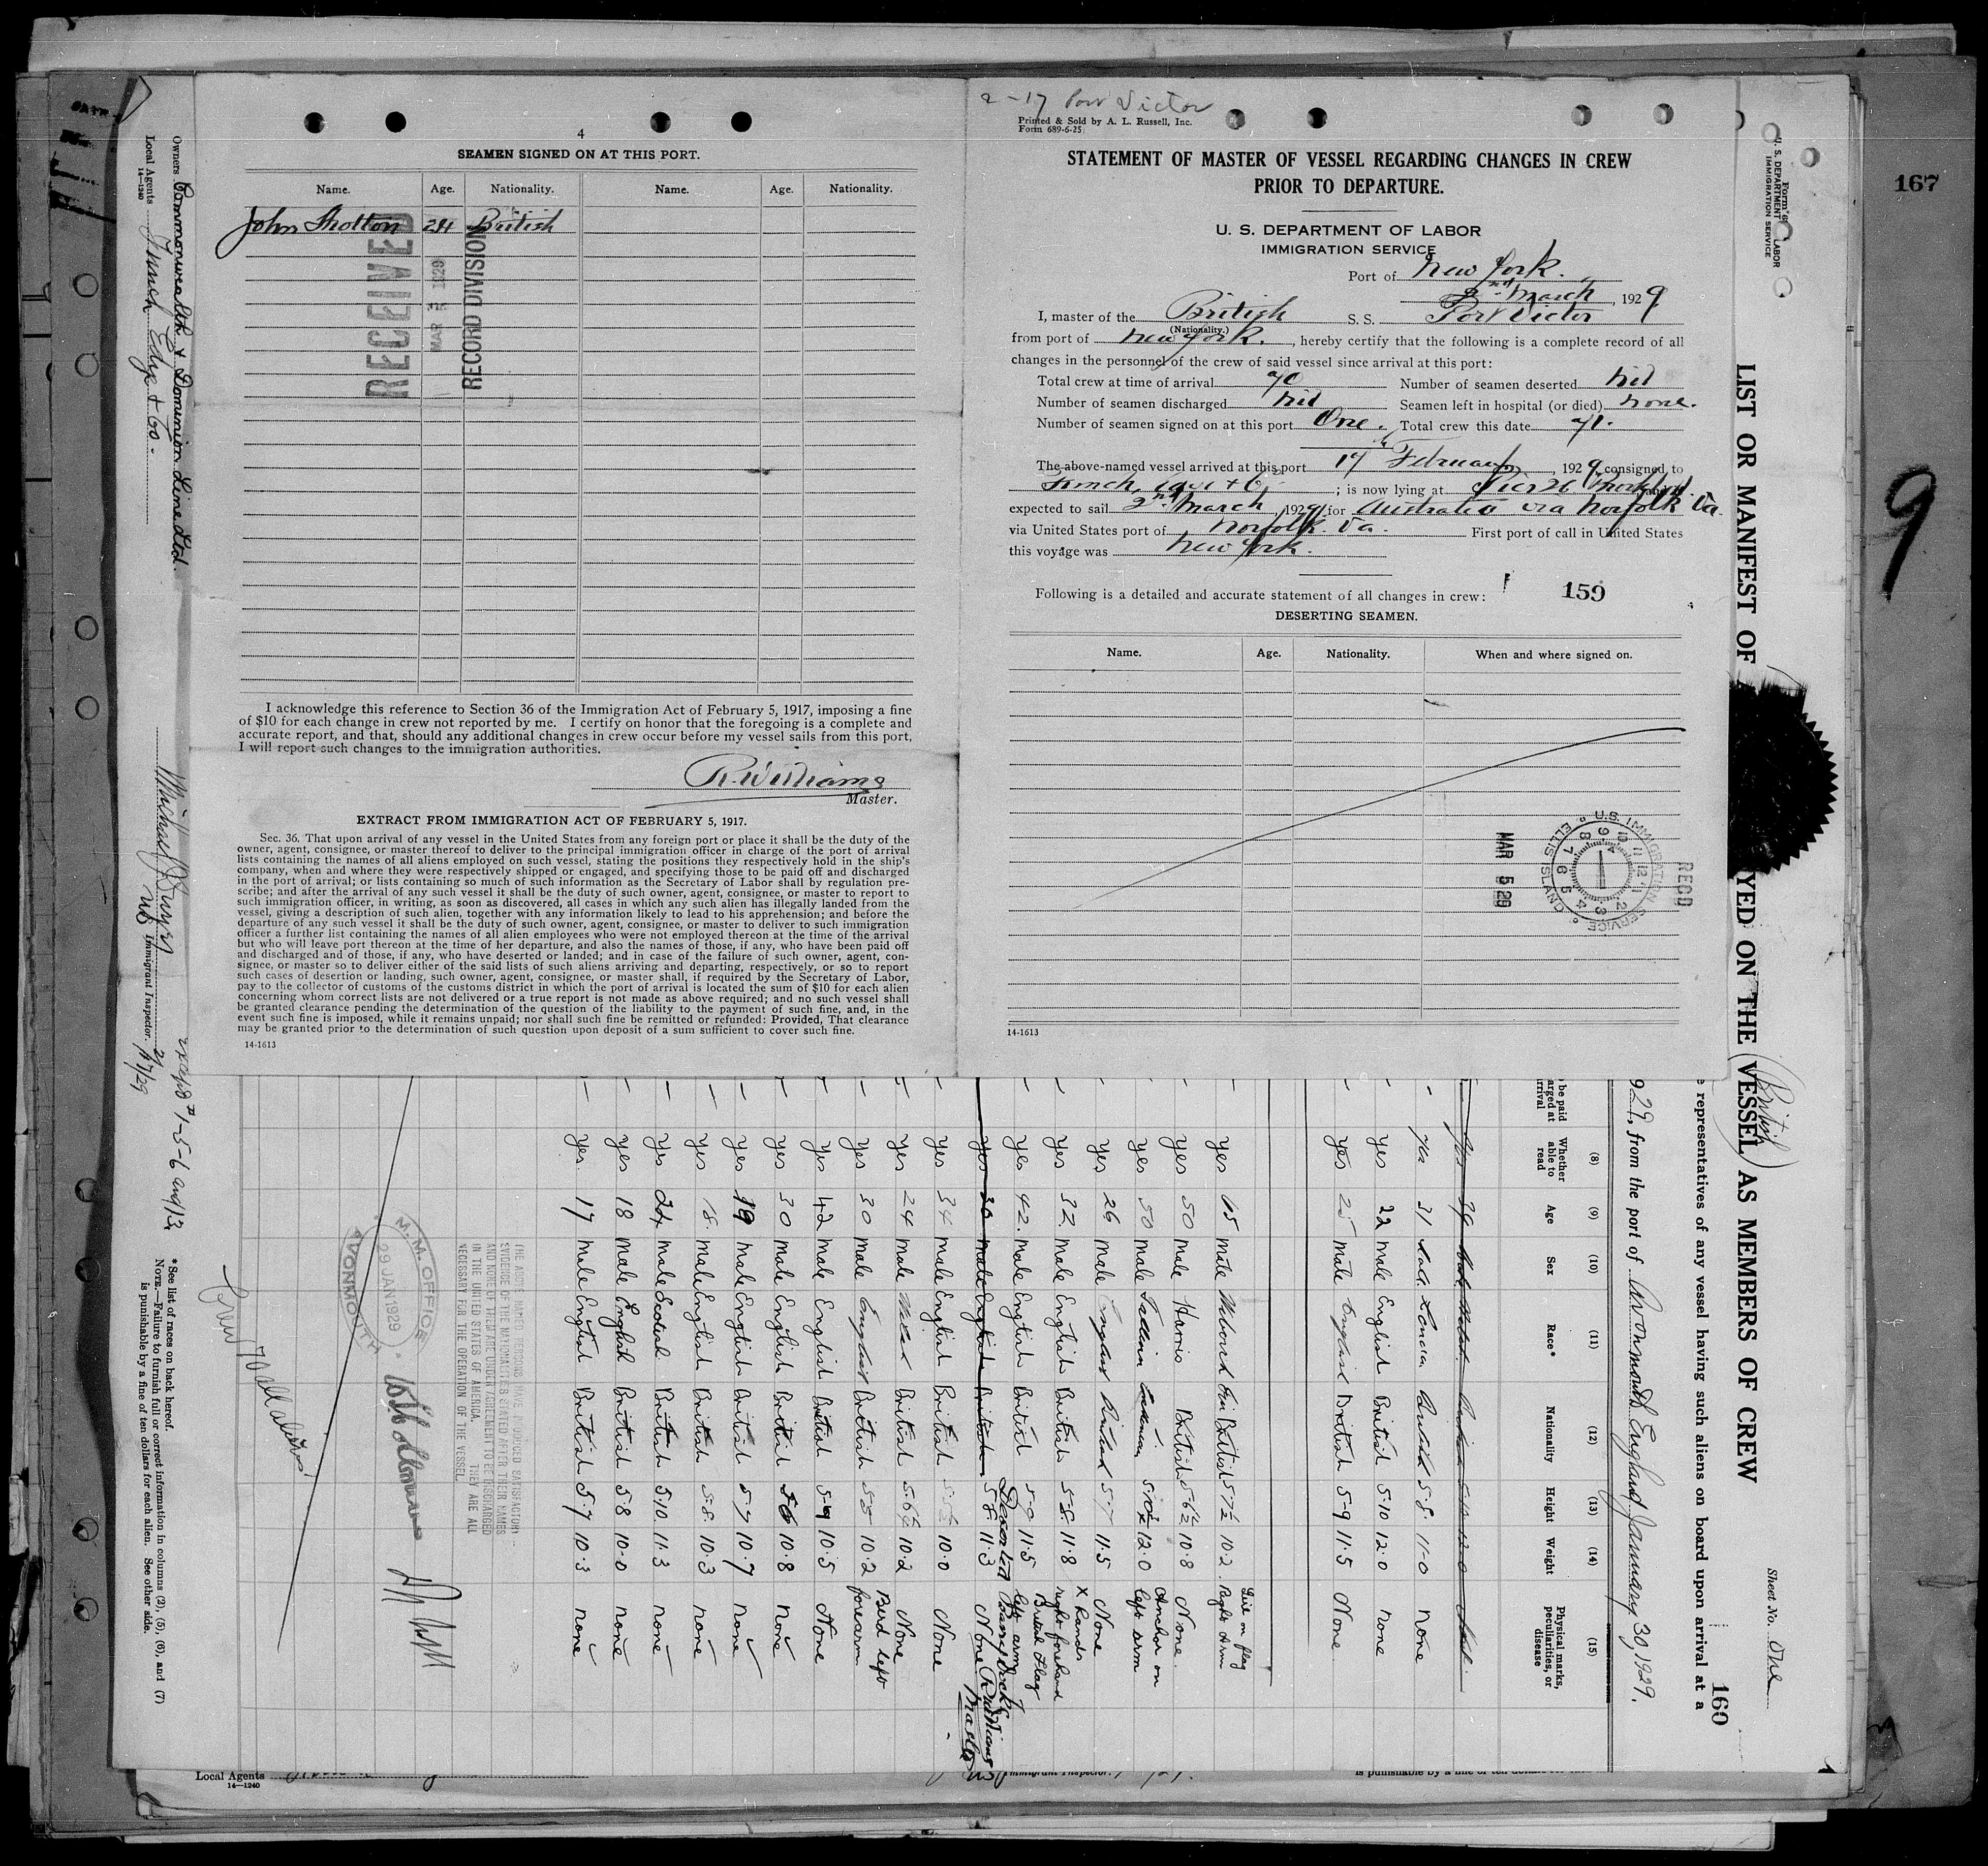 167
9
4
SEAMEN SIGNED ON AT THIS PORT.
Name. Age. Nationality. Name. Age. Nationality.
John 24 British
RECEIVED
MAR 5 1929
RECORD DIVISION
I acknowledge this reference to Section 36 of the Immigration Act of February 5, 1917, imposing a fine
of $10 for each change in crew not reported by me. I certify on honor that the foregoing is a complete and
accurate report, and that, should any additional changes in crew occur before my vessel sails from this port,
I will report such changes to the immigration authorities.
R. Williams
Master.
EXTRACT FROM IMMIGRATION ACT OF FEBRUARY 5, 1917.
Sec. 36. That upon arrival of any vessel in the United States from any foreign port or place it shall be the duty of the
owner, agent, consignee, or master thereof to deliver to the principal immigration officer in charge of the port of arrival
lists containing the names of all aliens employed on such vessel, stating the positions they respectively hold in the ship's
company, when and where they were respectively shipped or engaged, and specifying those to be paid off and discharged
in the port of arrival; or lists containing so much of such information as the Secretary of Labor shall by regulation pre-
scribe; and after the arrival of any such vessel it shall be the duty of such owner, agent, consignee, or master to report to
such immigration officer, in writing, as soon as discovered, all cases in which any such alien has illegally landed from the
vessel, giving a description of such alien, together with any information likely to lead to his apprehension; and before the
departure of any such vessel it shall be the duty of such owner, agent, consignee, or master to deliver to such immigration
officer a further list containing the names of all alien employees who were not employed thereon at the time of the arrival
but who will leave port thereon at the time of her departure, and also the names of those, if any, who have been paid off
and discharged and of those, if any, who have deserted or landed; and in case of the failure of such owner, agent, con-
signee, or master so to deliver either of the said lists of such aliens arriving and departing, respectively, or so to report
such cases of desertion or landing, such owner, agent, consignee, or master shall, if required by the Secretary of Labor,
pay to the collector of customs of the customs district in which the port of arrival is located the sum of $10 for each alien
concerning whom correct lists are not delivered or a true report is not made as above required; and no such vessel shall
be granted clearance pending the determination of the question of the liability to the payment of such fine, and, in the
event such fine is imposed, while it remains unpaid; nor shall such fine be remitted or refunded: Provided, That clearance
may be granted prior to the determination of such question upon deposit of a sum sufficient to cover such fine.
14-1613
2-17 Port Victor
Printed & Sold by A. L. Russell, Inc.
Form 689-6-25
STATEMENT OF MASTER OF VESSEL REGARDING CHANGES IN CREW
PRIOR TO DEPARTURE.
U. S. DEPARTMENT OF LABOR
IMMIGRATION SERVICE
Port of New York.
2nd March, 1929
I, master of the British S. S. Port Victor
(Nationality.)
from port of New York., hereby certify that the following is a complete record of all
changes in the personnel of the crew of said vessel since arrival at this port:
Total crew at time of arrival 70 Number of seamen deserted nil
Number of seamen discharged nil Seamen left in hospital (or died) none.
Number of seamen signed on at this port One. Total crew this date 71.
The above-named vessel arrived at this port 17th February, 1929, consigned to
; is now lying at Pier 26
expected to sail 2nd March, 1929 for Australia via Norfolk Va.
via United States port of Norfolk. Va. First port of call in United States
this voyage was New York.
Following is a detailed and accurate statement of all changes in crew: 159
DESERTING SEAMEN.
Name. Age. Nationality. When and where signed on.
MAR 5 29
U.S. IMMIGRATION SERVICE
ELLIS ISLAND
REC'D
14-1613
Form
U. S. DEPARTMENT LABOR
IMMIGRATION SERVICE
Sheet No. One
160
LIST OR MANIFEST OF YED ON THE (British VESSEL) AS MEMBERS OF CREW
e representatives of any vessel having such aliens on board upon arrival at a
929, from the port of Avonmouth England January 30, 1929.
(8) (9) (10) (11) (12) (13) (14) (15)
be paid arged at rrival
Whether able to read Age Sex Race* Nationality Height Weight Physical marks, peculiarities, or disease
yes 31 5-8 11-0 none
yes 22 male English British 5-10 12.0 none
yes 25 male English British 5-9 11.5 None
yes British 5-7½ 10.2 Right Arm
yes 50 male British 5-6½ 10.8 None.
yes 50 male 12.0 Anchor on left arm
yes 26 male English British 5-7 11.5 None
yes 32 male English British 5-8 11.8 right forehand
yes 42 male English British 5-9 11.5 left arm
yes 30 male English British 5-8 11.3 None
Deserted R Williams Master
yes 34 male English British 10.0 None
yes 24 male British 10.2 None
yes 30 male English British 5-5 10.2 Bird left forearm
yes 42 male English British 5-9 10.5 None
yes 30 male English British 5-6 10.8 none
yes 19 male English British 5-7 10.7 none
yes 18 male English British 5-8 10.3 none
yes 24 male Scotch British 5-10 11.3 none
yes 18 male English British 5-8 10-0 none
yes 17 male English British 5-7 10.3 none
THE ABOVE NAMED PERSONS HAVE PRODUCED SATISFACTORY
EVIDENCE OF THE NATIONALITIES STATED AFTER THEIR NAMES
AND NONE OF THEM ARE UNDER AGREEMENT TO BE DISCHARGED
IN THE UNITED STATES OF AMERICA. THEY ARE ALL
NECESSARY FOR THE OPERATION OF THE VESSEL
M.M. OFFICE
29 JAN 1929
AVONMOUTH
Crew 70 all aliens
Owners Commonwealth & Dominion Line Ltd.
Local Agents Funch Edye & Co.
14-1240
Immigrant Inspector.
*See list of races on back hereof.
NOTE.—Failure to furnish full or correct information in columns (3), (5), (6), and (7)
is punishable by a fine of ten dollars for each alien. See other side.
Local Agents
14-1240
Immigrant Inspector.